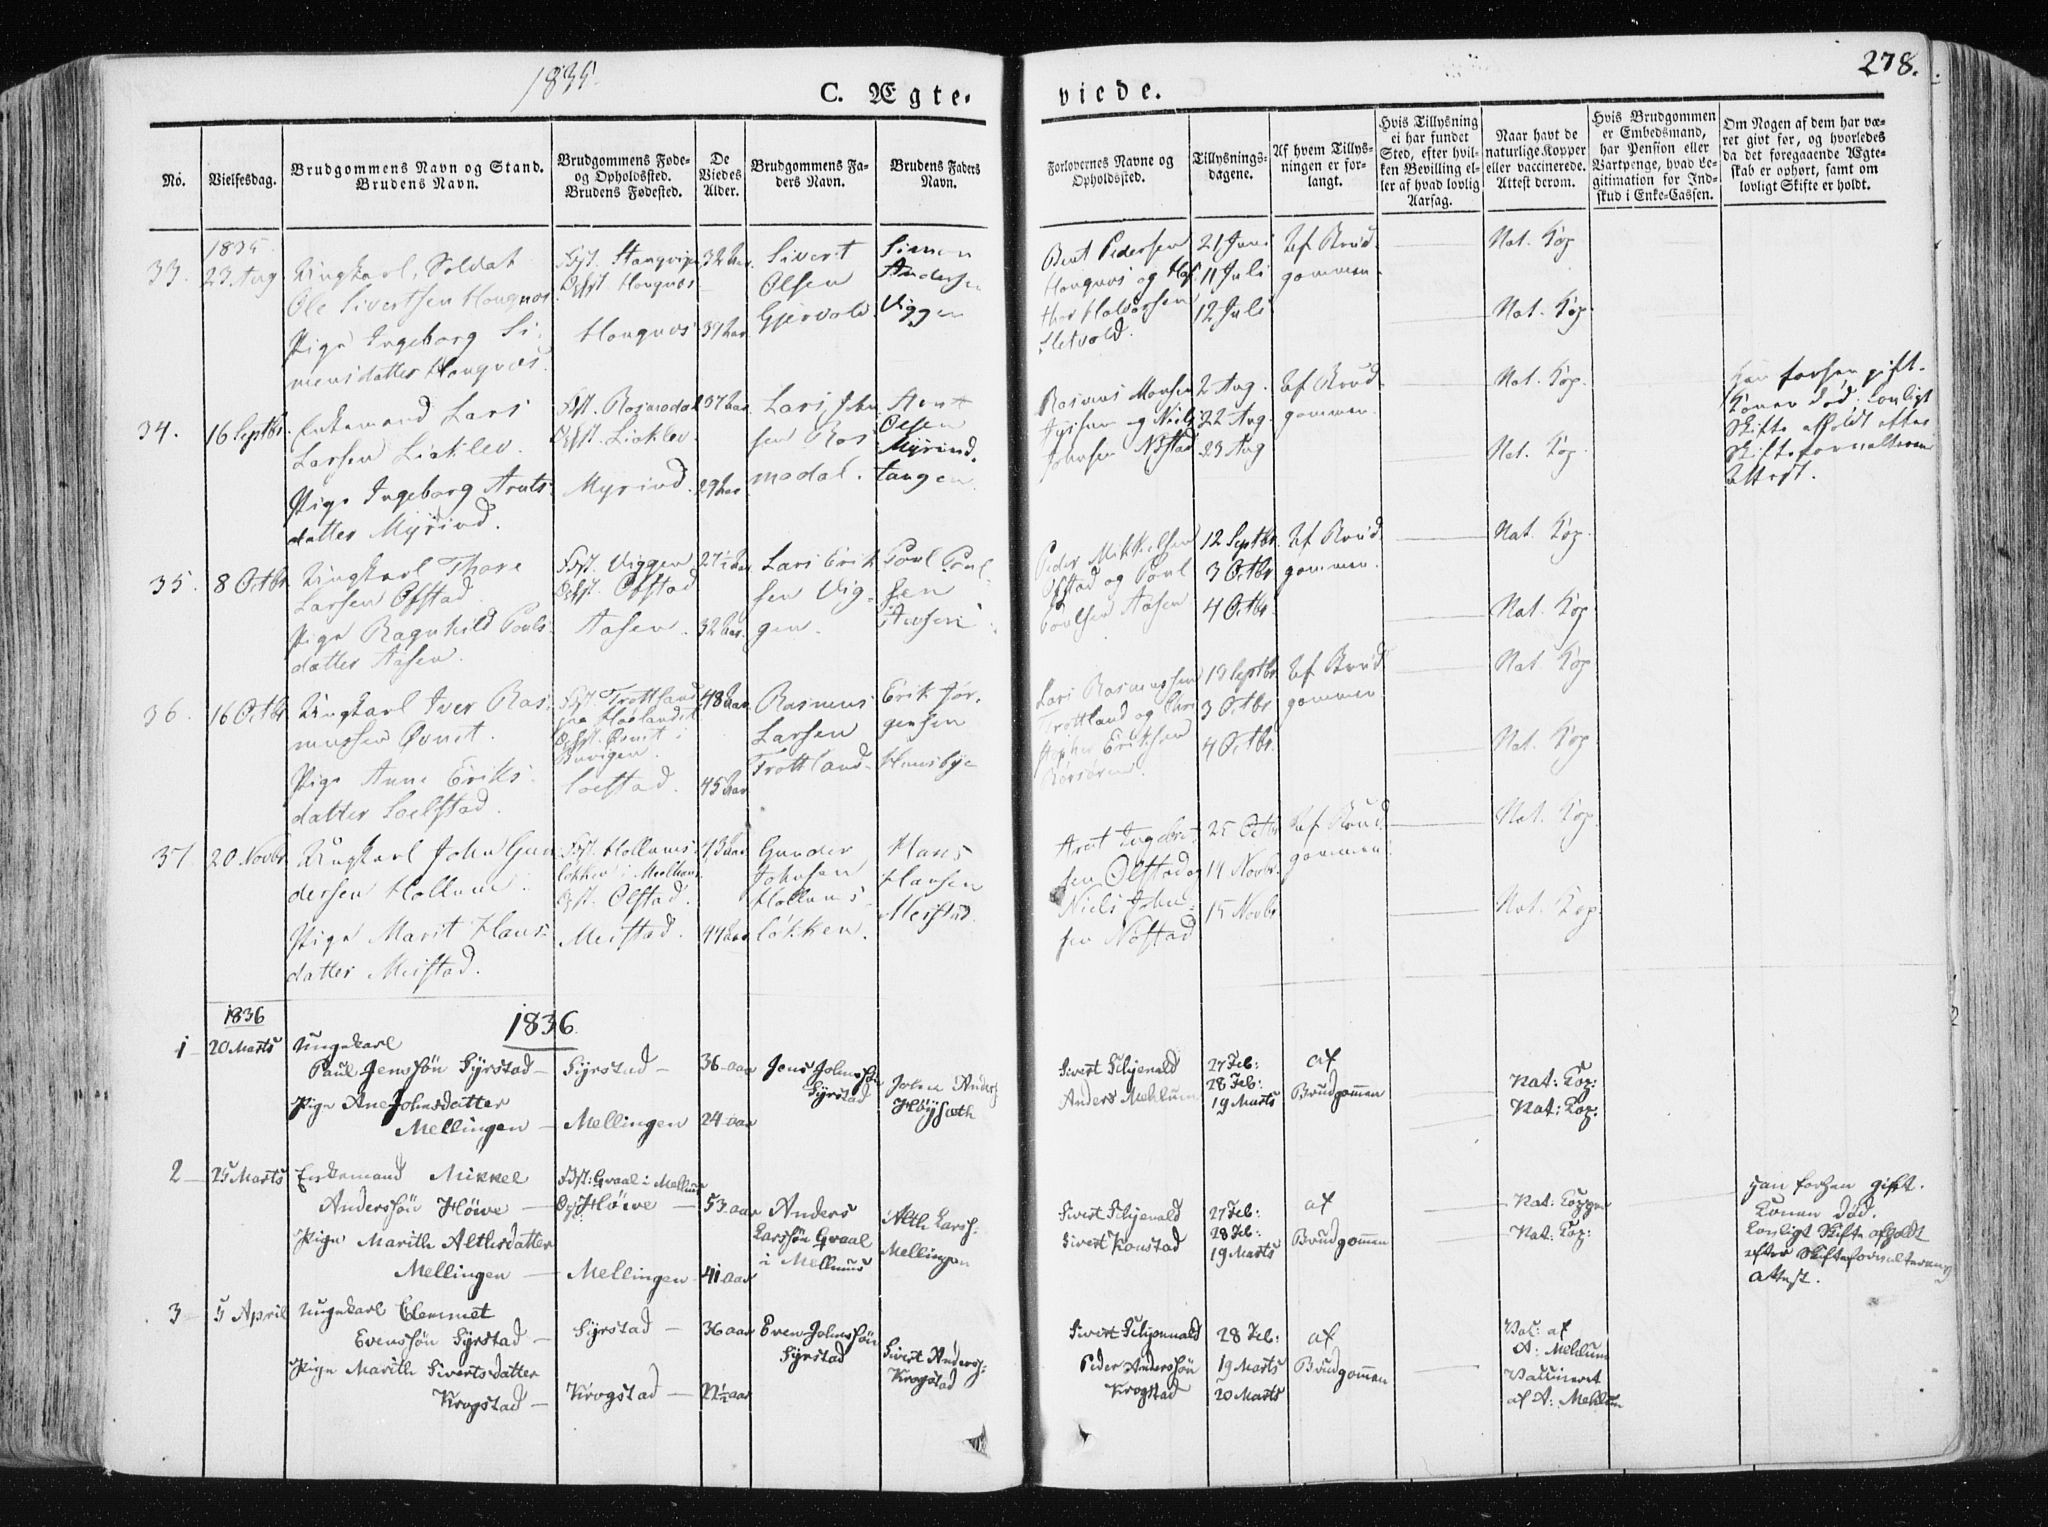 1835.
278.
C. Ægte-
viede.
No.
Vielsesdag.
Brudgommens Navn og Stand.
Brudens Navn.
Brudgommens Føde-
og Opholdssted.
Brudens Fødested.
De
Viedes
Alder.
Brudgommens Fa-
ders Navn.
Brudens Faders
Navn.
Forlovernes Navne og
Opholdssted.
Tillysnings-
dagene.
Af hvem Tillys-
ningen er for-
langt.
Hvis Tillysning
ei har fundet
Sted, efter hvil-
ken Bevilling el-
ler af hvad lovlig
Aarsag.
Naar havt de
naturlige Kopper
eller vaccinerede.
Attest derom.
Hvis Brudgommen
er Embedsmand,
har Pension eller
Vartpenge, hvad Le-
gitimation for Ind-
skud i Enke-Cassen.
Om Nogen af dem har væ-
ret givt før, og hvorledes
da det foregaaende Ægte-
skab er ophørt, samt om
lovligt Skifte er holdt.
1835
33.
23 Aug
Ungkarl, Soldat
Ole Sivertsen Hougnæs
Pige Ingeborg Si-
mensdatter Hougnæs.
Hougnæs
32 Aar.
39 Aar
Sivert
Olsen
Gjervold
Simen
Andersen
Viggen
Bent Pedersen
Hougnæs og
Halvorsen
Sletvold.
21 Juni
11 Juli
12 Juli
Af Brud-
gommen.
Nat. Kop.
Nat. Kop.
34.
16 Septbr.
Enkemand Lars
Larsen Lieklev.
Pige Ingeborg Arnts-
datter Myrind.
Fst. Rosmodal
Opst. Lieklev.
Myrind.
37 Aar
29 Aar
Lars John-
sen Ros-
modal.
Arnt
Olsen
Myrind-
tangen.
Rasmus Monsen
og Niels
Johnsen Nøstad
2 Aug.
22 Aug.
23 Aug
Af Brud-
gommen.
Nat. Kop.
Nat. Kop.
Han forhen gift.
Konen død. Lovligt
Skifte afholdt efter
Skifteforvalterens
Attest.
35.
8 Octbr
Ungkarl Thore
Larsen Ofstad.
Pige Ragnhild Pouls-
datter Aasen.
Fst. Viggen
Opst. Ofstad
Aasen.
27½ Aar
32 Aar.
Lars Erik-
sen Vig-
gen.
Poul Poul-
sen
Aasen.
Peder Mikkelsen
Ofstad og Poul
Poulsen Aasen
12 Septbr.
3 Octbr
4 Octbr.
Af Brud-
gommen.
Nat. Kop.
Nat. Kop.
36.
16 Octbr
Ungkarl Iver Ras-
mussen Qvnet.
Pige Anne Eriks-
datter Loelstad.
Fst. Trotland
Buvigen.
Loestad.
48 Aar.
45 Aar
Rasmus
Larsen
Trotland
Erik Jør-
gensen
Husbye
Lars Rasmussen
Trotland og Chri-
stopher Eriksen
19 Septbr
3 Octbr.
4 Octbr.
Af Brud-
gommen
Nat. Kop.
Nat. Kop.
37.
20 Novbr.
Ungkarl John Gun-
dersen Hollum.
Pige Marit Hans-
datter Meistad.
Fst. Hollums-
løkken i Meelhuus
Opst. Olstad.
Meistad.
43 Aar
44 Aar
Gunder
Johnsen
Hollums-
løkken.
Hans
Hansen
Meistad.
Arnt Ingebret-
sen Olstad og
Niels John-
sen Nøstad
25 Octbr
14 Novbr.
15 Novbr
Af Brud-
gommen.
Nat. Kop.
Nat. Kop.
1836
1836
1
20 Marts
Ungekarl
Paul Jenssøn Syrstad
Pige Ane Johnsdatter
Mellingen
Syrstad
Mellingen
36 aar
24 aar
Jens Johnssøn
Syrstad
John Anders
Höysæth
Sivert Schjenald
Anders Mehlum
27 Feb:
28 Feb:
19 Marts
af
Brudgomen
Nat: Kop:
Nat: Kop:
2
25 Marts
Enkemand Mikkel
Anderssøn Höwe
Pige Marith Althsdatter
Mellingen
Fst: Graal i Melhuus
Höwe
Mellingen
53 aar
41 aar
Anders
Larssøn Graal
i Melhuus
Alth Larss:
Mellingen
Sivert Schjenald
Sivert Konstad
27 Feb:
28 Feb:
19 Marts
af
Brudgomen
Nat: Kopper
Nat: Kop:
Han forhen gift.
Konen død.
Lovligt Skifte afholdt
efter Skifteforvalterens
Attest.
3
5 April
Ungekarl Clemmet
Evenssøn Syrstad
Pige Marith Sivertsdatter
Krogstad
Syrstad
Krogstad
36 aar
22½ aar
Even Johnssøn
Syrstad
Sivert Anderss:
Krogstad
Sivert Schjenald
Peder Anderssøn
Krogstad
28 Feb:
19 Marts
20 Marts
af
Brudgomen
Vac: af
A: Mehlum
Vaccineret
af A: Mehlum